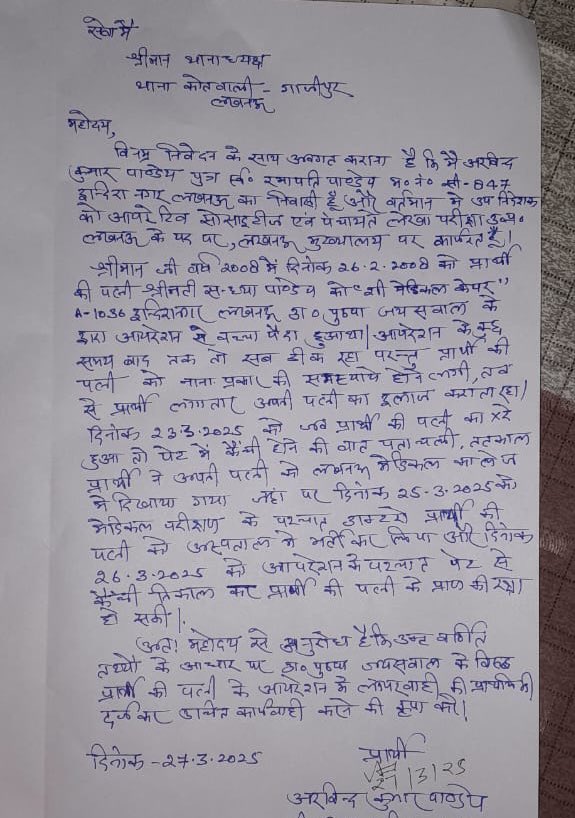 सेवा में
श्रीमान थानाध्यक्ष
थाना कोतवाली - गाजीपुर
लखनऊ
महोदय,
विनम्र निवेदन के साथ अवगत कराना है कि मै अरविन्द
कुमार पाण्डेय पुत्र स्व० रमापति पाण्डेय म० नं० सी-847
इन्दिरा नगर लखनऊ का निवासी है और वर्तमान मे उप निदेशक
को आपरेटिव सोसाइटीज एवं पंचायते लेखा परीक्षा उ०प्र०
लखनऊ के पद पर, लखनऊ मुख्यालय पर कार्यरत है।
श्रीमान जी वर्ष 2008 में दिनांक 26.2.2008 को प्रार्थी
की पत्नी श्रीमती सन्ध्या पाण्डेय को "शी मेडिकल केयर"
A-1036 इन्दिरानगर लखनऊ डा० पुष्पा जयसवाल के
द्वारा आपरेशन से बच्चा पैदा हुआ था। आपरेशन के कुछ
समय बाद तक तो सब ठीक रहा परन्तु प्रार्थी की
पत्नी को नाना प्रकार की समस्याये होने लगी, तब
से प्रार्थी लगातार अपनी पत्नी का इलाज कराता रहा।
दिनांक 23.3.2025 को जब प्रार्थी की पत्नी का X रे
हुआ तो पेट में कैंची होने की बात पता चली, तत्काल
प्रार्थी ने अपनी पत्नी को लखनऊ मेडिकल कालेज
मे दिखाया गया जहां पर दिनांक 25.3.2025 को
मेडिकल परीक्षण के पश्चात डाक्टरो प्रार्थी की
पत्नी को अस्पताल मे भर्ती कर लिया और दिनांक
26.3.2025 को आपरेशन के पश्चात पेट से
कैंची निकाल कर प्रार्थी की पत्नी के प्राण की रक्षा
हो सकी।
अतः महोदय से अनुरोध है कि उक्त वर्णित
तथ्यो के आधार पर डा० पुष्पा जयसवाल के विरुद्ध
प्रार्थी की पत्नी के आपरेशन मे लापरवाही की प्राथमिकी
दर्ज कर उचित कार्यवाही करने की कृपा करे।
दिनांक - 27.3.2025
प्रार्थी
27/3/25
अरविन्द कुमार पाण्डेय